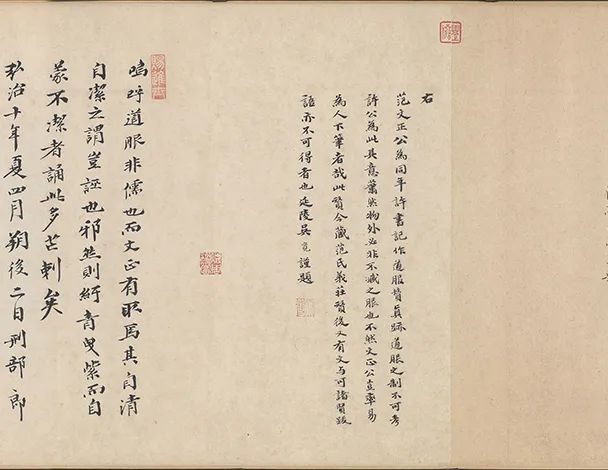 右
范文正公為同年許書記作道服贊真跡道服之制不可考
許公為此其意蕭然物外必非不之服也不然文正公豈率易
為人下筆者哉此贊今藏范氏義莊贊後又有文與可諸賢跋
亦不可得者也延陵吳寬謹題
嗚呼道服非儒也而文正有取焉其自清
自潔之謂豈誣也邪然則紆青曳紫而自
蒙不潔者誦此多芒刺矣
弘治十年夏四月朔後二日刑部郎